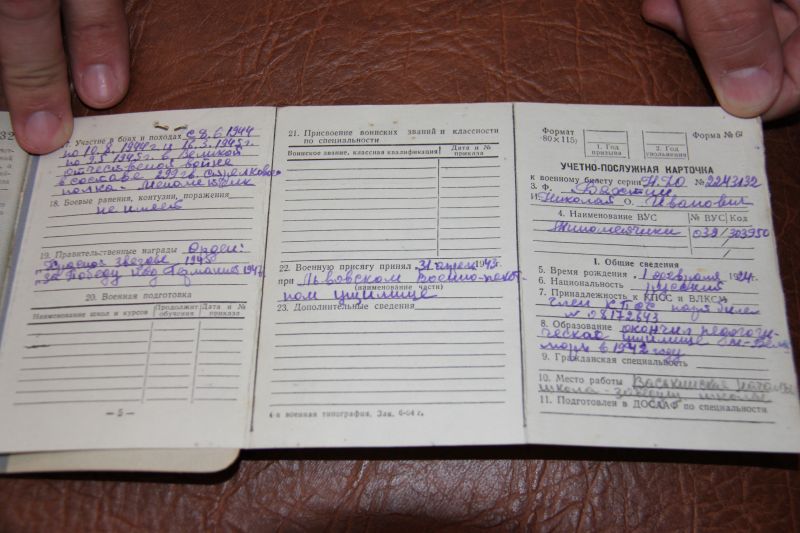 32
17. Участие в боях и походах с 8.6.1944
по 10.8.1944 г. и 16.3.1945 г.
по 9.5.1945 г. в Великой
отечественой войне
в составе 299 гв. стрелкового
полка - минометчик
18. Боевые ранения, контузии, поражения
не имеет
19. Правительственные награды Орден:
Красной звезды 1945
за Победу над Германией 1947
20. Военная подготовка
Наименование школ и курсов
Продолжит. обучения
Дата и № приказа
— 5 —
21. Присвоение воинских званий и классности
по специальности
Воинское звание, классная квалификация
Дата и № приказа
22. Военную присягу принял 31 апреля 1943 г.
при Львовском Военно-пехот-
(наименование части)
ном училище
23. Дополнительные сведения
4-я военная типография, Зак. 6-64 г.
Формат
(80×115)
1. Год призыва
2. Год увольнения
Форма № 6
УЧЕТНО-ПОСЛУЖНАЯ КАРТОЧКА
к военному билету серии НЮ № 2243132
3. Ф.
И. Николай О. Иванович
4. Наименование ВУС
№ ВУС
Код
Минометчики
039/303950
I. Общие сведения
5. Время рождения 1 февраля 1924 г.
6. Национальность русский
7. Принадлежность к КПСС и ВЛКСМ
член КПСС парт. билет
№ 08172643
8. Образование окончил педагоги-
ческое училище
в 1942 году
9. Гражданская специальность
10. Место работы Васькинская началь
школа - заведующ. школы
11. Подготовлен в ДОСААФ по специальности